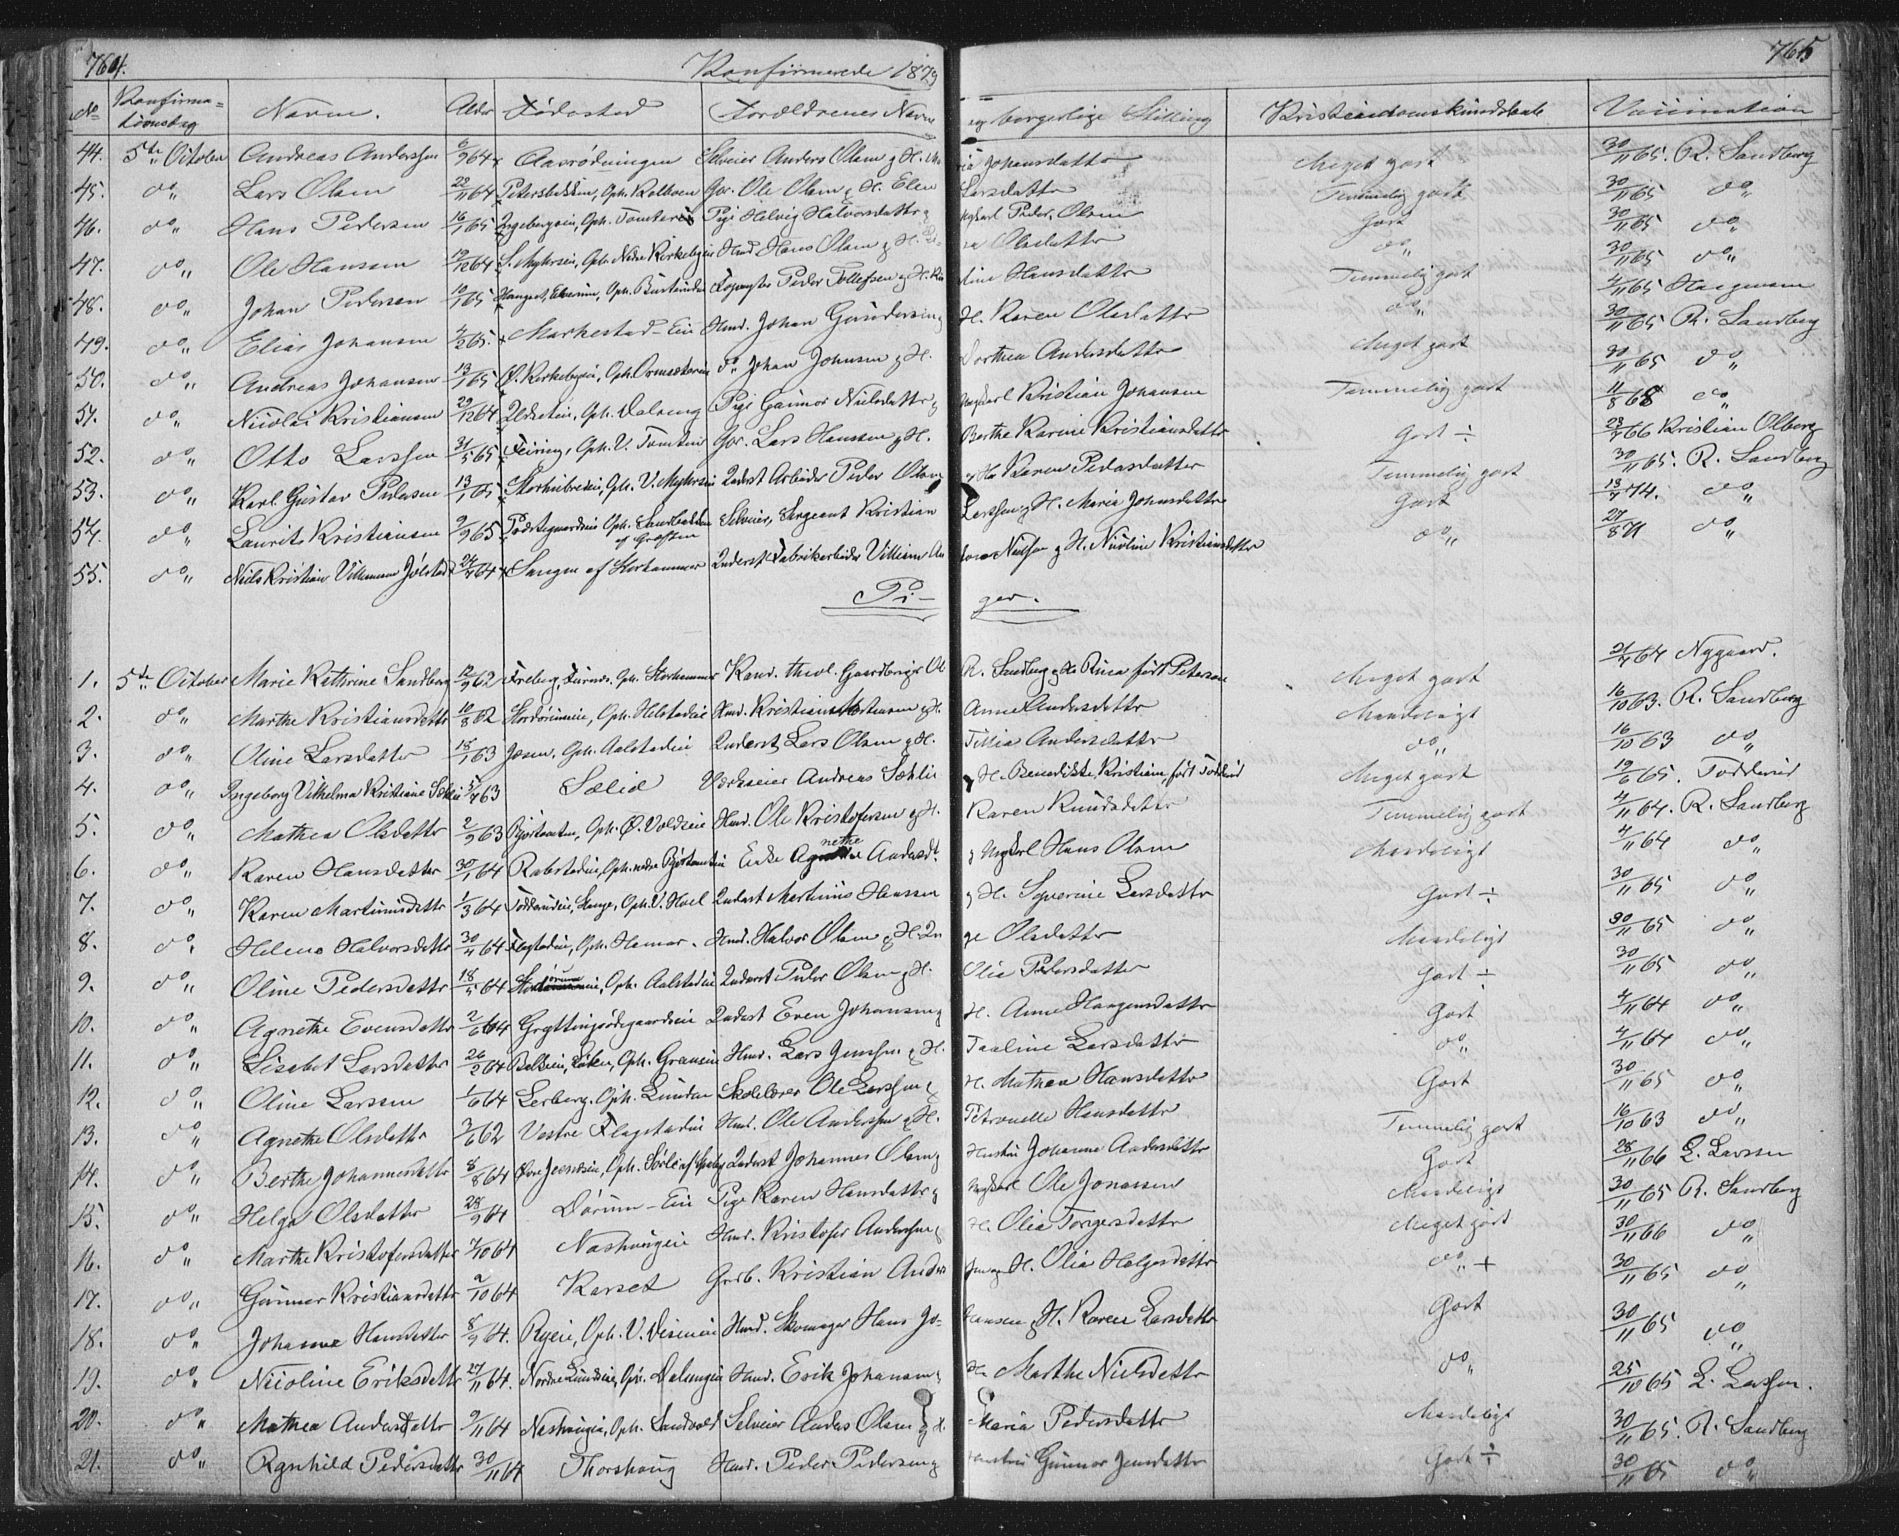 764. Konfirmerede 1879 765
No Konfirma= Navn. Alder Fødested Forældrenes Navn og borgerlige Stilling Kristendomskundskab Vaccination
tionsdag
44. 5te October Andreas Anderssen 6/9 64 Aasrødningen Selveier Anders Olsen og H. Johansdatter Meget godt 30/11 65. R. Sandberg
45. do Lars Olsen 28/11 64 Petersbakken, Oph. Kolboen Gbr. Ole Olsen og H. Elen Larsdatter Temmelig godt 30/11 65 do
46. do Hans Pedersen 16/1 65 Ingebergeie, Oph. Pige Helvig Halvorsdatter og Ungkarl Peder Olsen Godt 30/11 65 do
47. do Ole Hansen 19/12 64 S. Myhrseie, Oph. Nedre Kirkebyeie Hmd Hans Olsen og H. Olsdatter do 30/11 65 do
48. do Johan Pedersen 10/1 65 Elverum, Oph. Peder Tollefsen og H. Hansdatter Temmelig godt 4/11 65 Haagensen
49. do Elias Johansen 2/2 65. Markestad-Eie Hmd. Johan Gundersen og H. Karen Olsdatter do 30/11 65 R. Sandberg
50. do Andreas Johansen 13/1 65 Ø. Kirkebyeie, Oph. Do Johan Johnsen og H. Dorthea Andersdatter Meget godt 30/11 65 do
51. do Nicolai Kristiansen 29/12 64 Oph. Dalseng Pige Gunnor Nielsdatter og Ungkarl Kristian Johansen Temmelig godt 11/8 68 do
52. do Otto Larssen 31/5 65 Feiring, Oph. V. Gbr. Lars Hanssen og H. Berthe Karine Kristiansdatter Godt ÷ 23/ 66 Kristian Olberg
53. do Karl Gustav Pedersen 13/1 65 Oph. V. Myhrseie Inderst Arbeider Peder Olsen og H. Karen Pedersdatter Temmelig godt 30/11 65. R. Sandberg
54. do Laurits Kristiansen 9/9 65 Præstegaardseie Oph. Sandbakken Selveier, Sergeant Kristian Larssen og H. Maria Johnsdatter Godt 13/ 74. do
55. do Niels Kristian Villumsen Jølstad 24/ 64 Sangen af Storhammer Inderst Fabrikarbeider Villum Nielsen og H. Nicoline Kristiansdatter do 27/8 71 do
Pi- ger.
1. 5te October Marie Kathrine Sandberg 12/9 62 Freberg, Furnes, Oph. Storhammer Kand. theol. Gaardbruger Ol R. Sandberg og H. født Petersen Meget godt 21/7 64 Nygaard.
2. do Marthe Kristiansdatter 10/8 62 Oph. Helstadeie Hmd. Kristian Mortensen og H. Anne Andersdatter Maadeligt 16/10 63. R. Sandberg
3. do Oline Larsdatter 18/1 63 Jesen, Oph. Aalstadeie Inderst Lars Olsen og H. Tillia Andersdatter do 16/10 63 do
4. do Ingeborg Vilhelma Kristiane Sælie 5/7 63 Sælid Værkseier Andreas Sælie og H. Benedikte Kristiane født Todderud Meget godt 19/6 65. Todderud
5. do Mathea Olsdatter 2/9 63 Oph. Ø. Voldseie Hmd. Ole Kristofersen og H. Karen Knudsdatter Temmelig godt 4/11 64. R. Sandberg
6. do Karen Hansdatter 30/1 64 Rabstadeie, Oph. nedre Enke Agnethe Andersdt. og Ungkarl Hans Olsen Maadeligt 4/11 64 do
7. do Karen Martinusdatter 1/3 64 Stange, Oph. V. Hoel Inderst Martinus Hanssen og H. Syverine Larsdatter Godt ÷ 30/11 65 do
8. do Helene Halvorsdatter 30/4 64 Flagstadeie, Oph. Hamar. Hmd. Halvor Olsen og H. Inge Olsdatter Maadeligt 30/11 65 do
9. do Oline Pedersdatter 18/5 64 Oph. Aalstadeie Inderst Peder Olsen og H. Olia Pedersdatter Godt ÷ 30/11 65 do
10. do Agnethe Evensdatter 2/6 64 Gryttingsødegaardseie Inderst Even Johansen og H. Anne Haagensdatter Godt 4/11 64 do
11. do Lisabet Larsdatter 26/2 64 Løten, Oph. Hmd. Lars Jenssen og H. Pauline Larsdatter do 4/11 64 do
12. do Oline Larssen 1/6 64 Lerberg. Oph. Lunden Skolelærer Ole Larssen og H. Mathea Hansdatter Godt 30/11 65 do
13. do Agnethe Olsdatter 3/6 62 Vestre Flagstadeie Hmd. Ole Anderssen og H. Petronelle Hansdatter Temmelig godt 16/10 63 do
14. do Berthe Johannesdatter 8/8 64 Inderst Johannes Olsen og Hustru Johanne Andersdatter Godt 28/11 66 L. Larssen
15. do Helga Olsdatter 28/9 64 Dørum-Eie Pige Karen Hansdatter og Ungkarl Ole Jonassen Maadeligt 30/11 65 R. Sandberg
16. do Marthe Kristofersdatter 7/10 64 Nashougeie Hmd. Kristofer Anderssen og H. Olia Torgersdatter Meget godt 30/11 66 do
17. do Gunnor Kristiansdatter 2/10 64 Karset Grdb. Kristian Anderssen og H. Olia Helgesdatter do + 30/11 65 do
18. do Johanne Hansdatter 8/9 64. Ryeie, Oph. V. Diseneie Hmd. Skomager Hans Johansen og H. Karen Larsdatter Godt 30/11 65 do
19. do Nicoline Eriksdatter 27/11 64. Nordre Lundeie, Oph. Dalsengeie Hmd. Erik Johansen og H. Marthe Nielsdatter do 25/10 65 L. Larssen.
20. do Mathea Andersdatter 9/11 64 Nashougeie, Oph. Sandvold Selveier Anders Olsen og H. Maria Pedersdatter Maadeligt 30/11 65. R. Sandberg
21. do Ragnhild Pedersdatter 30/11 64 Thorshoug Hmd. Peder Pedersen og Hustru Gunnor Jensdatter Godt ÷ 30/11 65 do